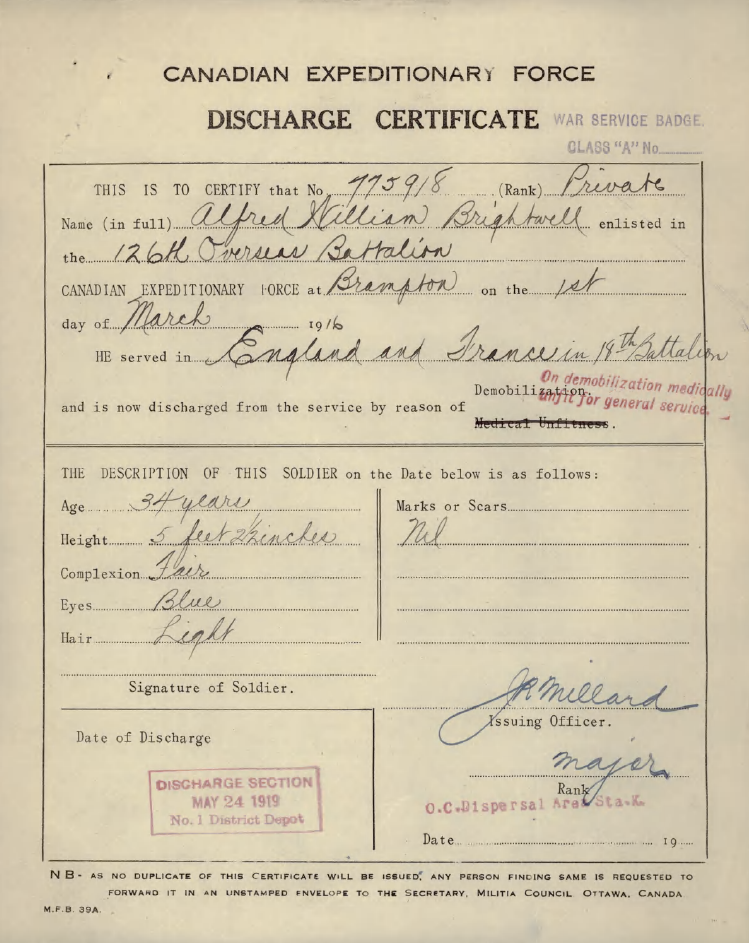 CANADIAN EXPEDITIONARY FORCE
DISCHARGE CERTIFICATE
WAR SERVICE BADGE.
CLASS "A" No
THIS IS TO CERTIFY that No. 775918 (Rank) Private
Name (in full) Alfred William Brightwell enlisted in
the 126th Overseas Battalion
CANADIAN EXPEDITIONARY FORCE at Brampton on the 1st
day of March 1916
HE served in England and France in 19th Battalion
Demobilization.
On demobilization medically
unfit for general service.
and is now discharged from the service by reason of
Medical Unfitness.
THE DESCRIPTION OF THIS SOLDIER on the Date below is as follows:
Age 34 years
Height 5 feet 2½ inches
Complexion Fair
Eyes Blue
Hair Light
Marks or Scars
Nil
Signature of Soldier.
JR Millard
Issuing Officer.
Major
Rank
O.C. Dispersal Area Sta. K.
Date 19
Date of Discharge
DISCHARGE SECTION
MAY 24 1919
No. 1 District Depot
NB- AS NO DUPLICATE OF THIS CERTIFICATE WILL BE ISSUED, ANY PERSON FINDING SAME IS REQUESTED TO
FORWARD IT IN AN UNSTAMPED ENVELOPE TO THE SECRETARY, MILITIA COUNCIL OTTAWA, CANADA
M.F.B. 39A.